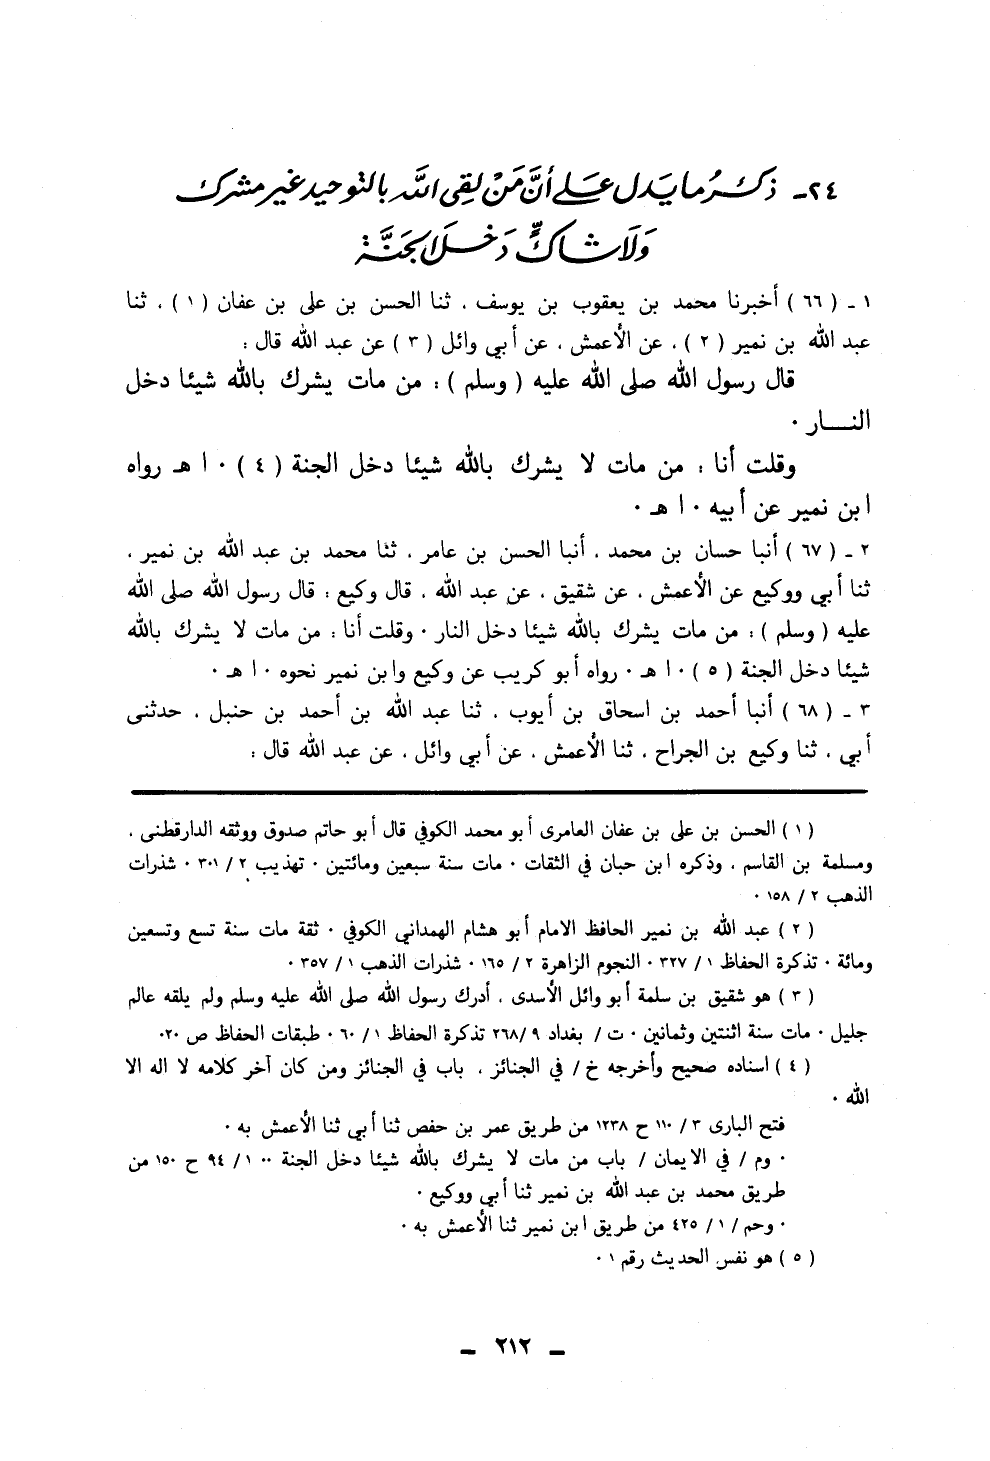 ٢٤ـ ذكر ما يدل على أنَّ مَنْ لقي الله بالتوحيد غير مشرك
وَلَا شاكٍّ دَخل الجَنَّة
١ ـ ( ٦٦ ) أخبرنا محمد بن يعقوب بن يوسف ، ثنا الحسن بن على بن عفان ( ١ ) ، ثنا
عبد الله بن نمير ( ٢ ) ، عن الأعمش ، عن أبي وائل ( ٣ ) عن عبد الله قال :
قال رسول الله صلى الله عليه ( وسلم ) : من مات يشرك بالله شيئا دخل
النـــار ٠
وقلت أنا : من مات لا يشرك بالله شيئا دخل الجنة ( ٤ ) ٠ ا هـ رواه
ابن نمير عن أبيه ٠ ا هـ ٠
٢ ـ ( ٦٧ ) أنبا حسان بن محمد ، أنبا الحسن بن عامر ، ثنا محمد بن عبد الله بن نمير ،
ثنا أبي ووكيع عن الأعمش ، عن شقيق ، عن عبد الله ، قال وكيع : قال رسول الله صلى الله
عليه ( وسلم ) : من مات يشرك بالله شيئا دخل النار ٠ وقلت أنا : من مات لا يشرك بالله
شيئا دخل الجنة ( ٥ ) ٠ ا هـ ٠ رواه أبو كريب عن وكيع وابن نمير نحوه ٠ ا هـ ٠
٣ ـ ( ٦٨ ) أنبا أحمد بن اسحاق بن أيوب ، ثنا عبد الله بن أحمد بن حنبل ، حدثنى
أبي ، ثنا وكيع بن الجراح ، ثنا الأعمش ، عن أبي وائل ، عن عبد الله قال :
( ١ ) الحسن بن على بن عفان العامرى أبو محمد الكوفي قال أبو حاتم صدوق ووثقه الدارقطنى ،
ومسلمة بن القاسم ، وذكره ابن حبان في الثقات ٠ مات سنة سبعين ومائتين ٠ تهذيب ٢ / ٣٠١ ٠ شذرات
الذهب ٢ / ١٥٨ ٠
( ٢ ) عبد الله بن نمير الحافظ الامام أبو هشام الهمداني الكوفي ٠ ثقة مات سنة تسع وتسعين
ومائة ٠ تذكرة الحفاظ ١ / ٣٢٧ ٠ النجوم الزاهرة ٢ / ١٦٥ ٠ شذرات الذهب ١ / ٣٥٧ ٠
( ٣ ) هو شقيق بن سلمة أبو وائل الأسدى ، أدرك رسول الله صلى الله عليه وسلم ولم يلقه عالم
جليل ٠ مات سنة اثنتين وثمانين ٠ ت / بغداد ٩ /٢٦٨ تذكرة الحفاظ ١ / ٦٠ ٠ طبقات الحفاظ ص ٢٠٠
( ٤ ) اسناده صحيح وأخرجه خ / في الجنائز ، باب في الجنائز ومن كان آخر كلامه لا اله الا
الله ٠
فتح البارى ٣ / ١١٠ ح ١٢٣٨ من طريق عمر بن حفص ثنا أبي ثنا الأعمش به ٠
٠ وم / في الايمان / باب من مات لا يشرك بالله شيئا دخل الجنة ٠٠ ١ / ٩٤ ح ١٥٠ من
طريق محمد بن عبد الله بن نمير ثنا أبي ووكيع ٠
٠ وحم / ١ / ٤٢٥ من طريق ابن نمير ثنا الأعمش به ٠
( ٥ ) هو نفس الحديث رقم ١ ٠
ـ ٢١٢ ـ